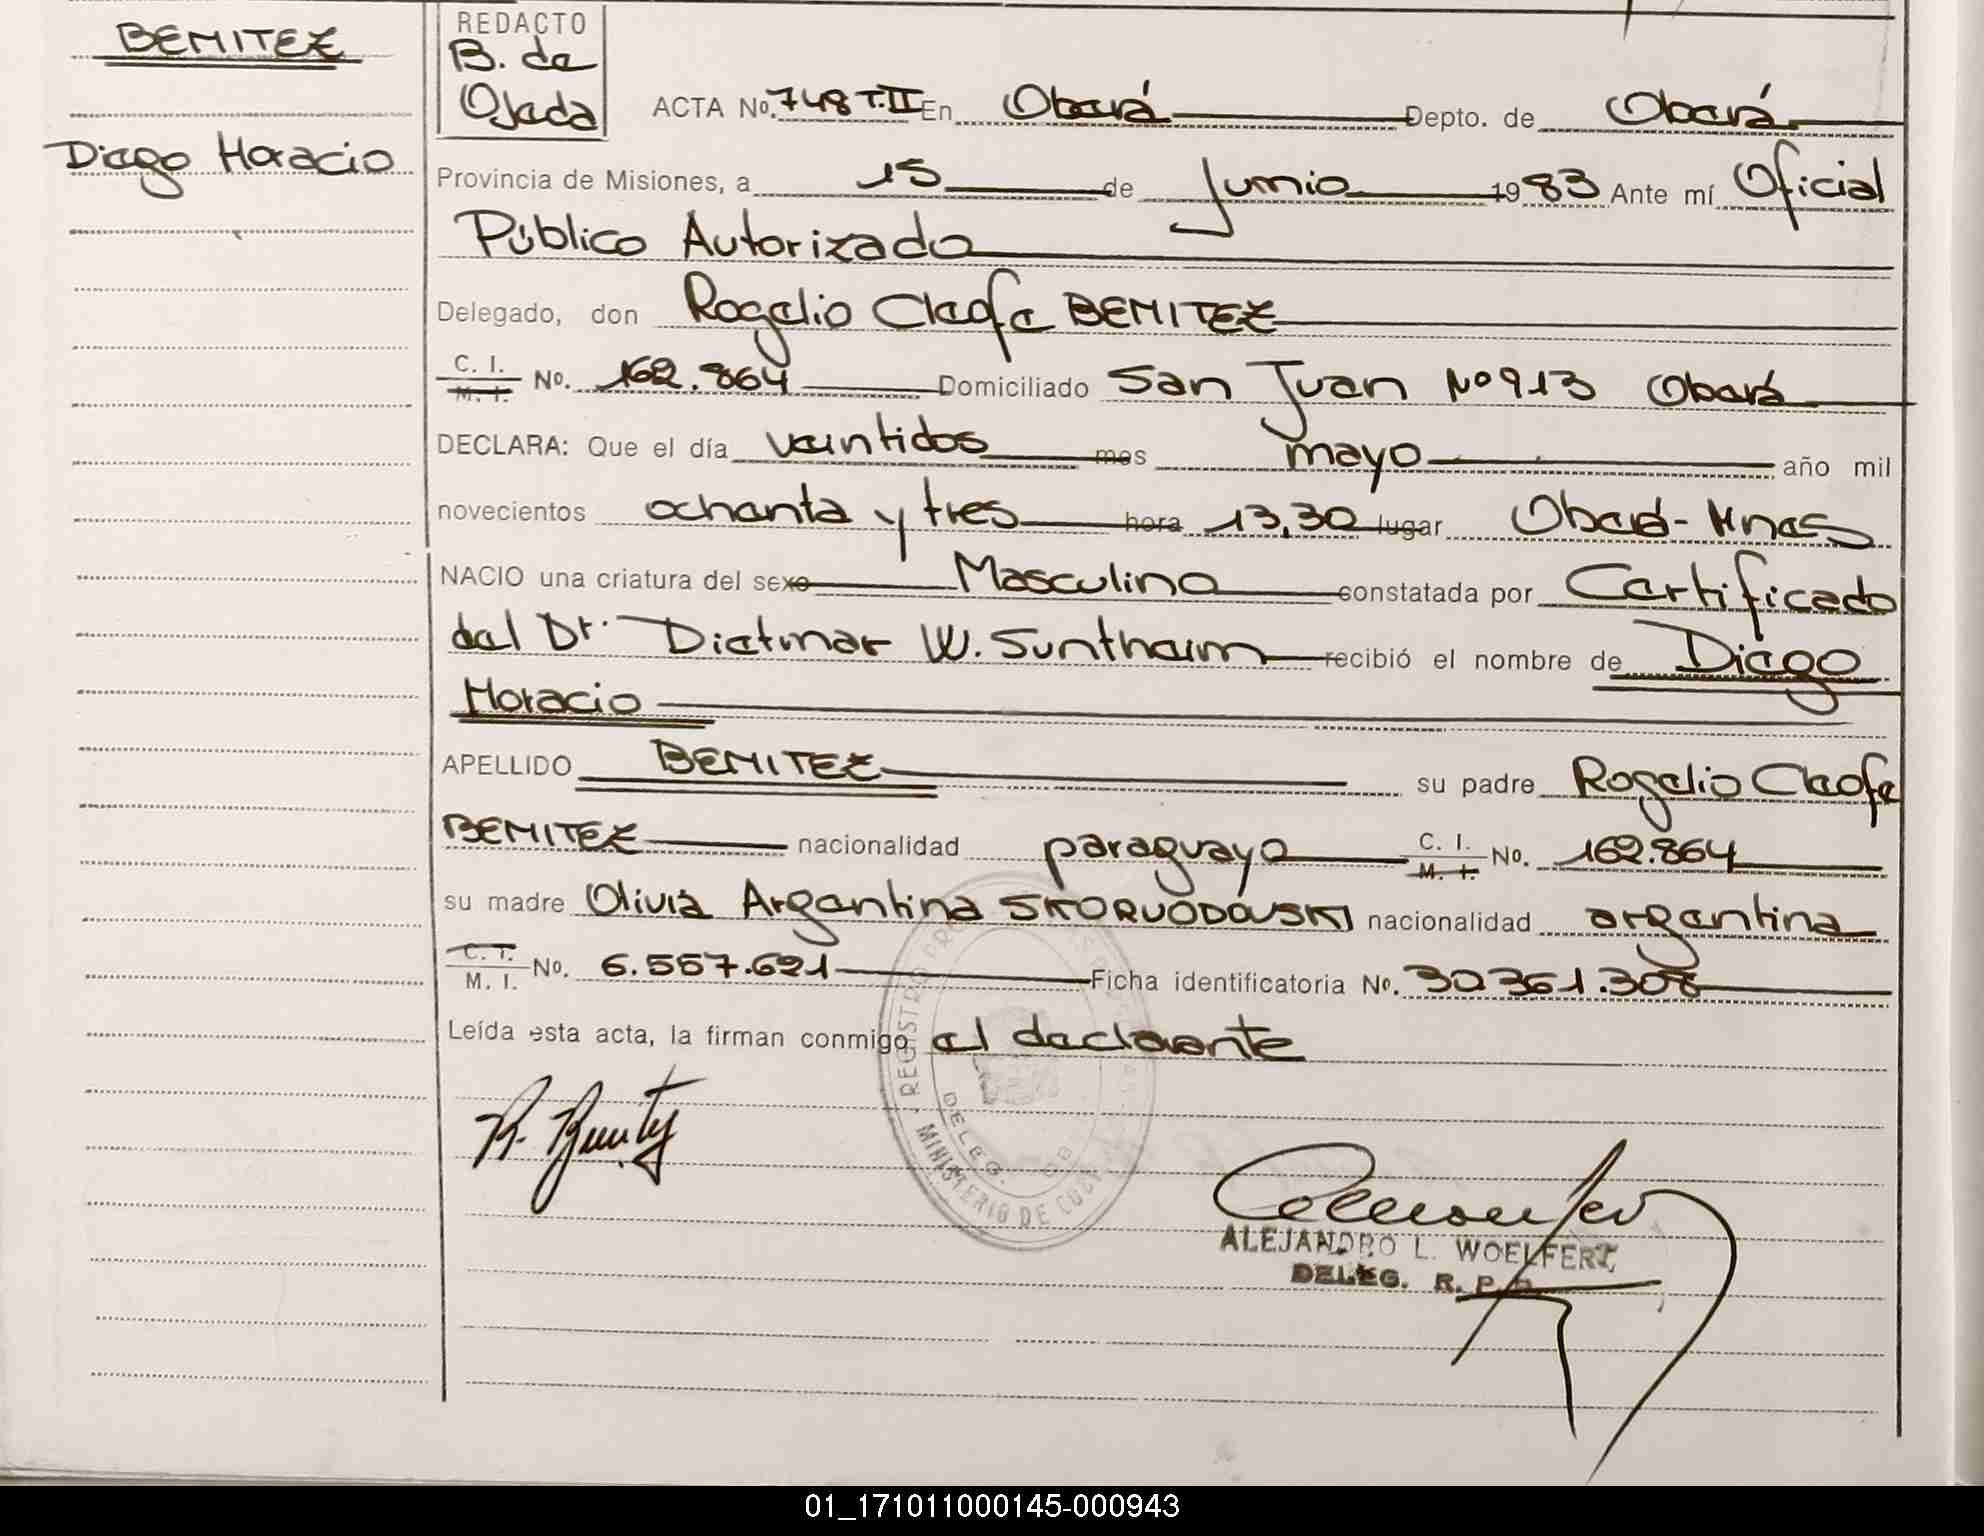 BENITEZ
Diego Horacio
REDACTO
B. de
Ojeda
ACTA No. 748 T.II En Oberá Depto. de Oberá
Provincia de Misiones, a 15 de Junio 1983 Ante mí Oficial
Público Autorizado
Delegado, don Rogelio Cleofe BENITEZ
C. I. M. I. No. 162.864 Domiciliado San Juan Nº 913 Oberá
DECLARA: Que el día veintidos mes mayo año mil
novecientos ochenta y tres hora 13,30 lugar Oberá-Mnes
NACIO una criatura del sexo Masculino constatada por Certificado
del Dr. Dietmar W. Sunthein recibió el nombre de Diego
Horacio
APELLIDO BENITEZ su padre Rogelio Cleofe
BENITEZ nacionalidad paraguayo C. I. M. I. No. 162.864
su madre Olivia Argentina SKORVODOUSKI nacionalidad argentina
C. I. M. I. No. 6.557.621 Ficha identificatoria No. 30.361.308
Leída esta acta, la firman conmigo el declarante
R. Benitez
REGISTRO PRO
DELEG. OB
MINISTERIO DE GOB
ALEJANDRO L. WOELFERT
DELEG. R. P. P.
01_171011000145-000943